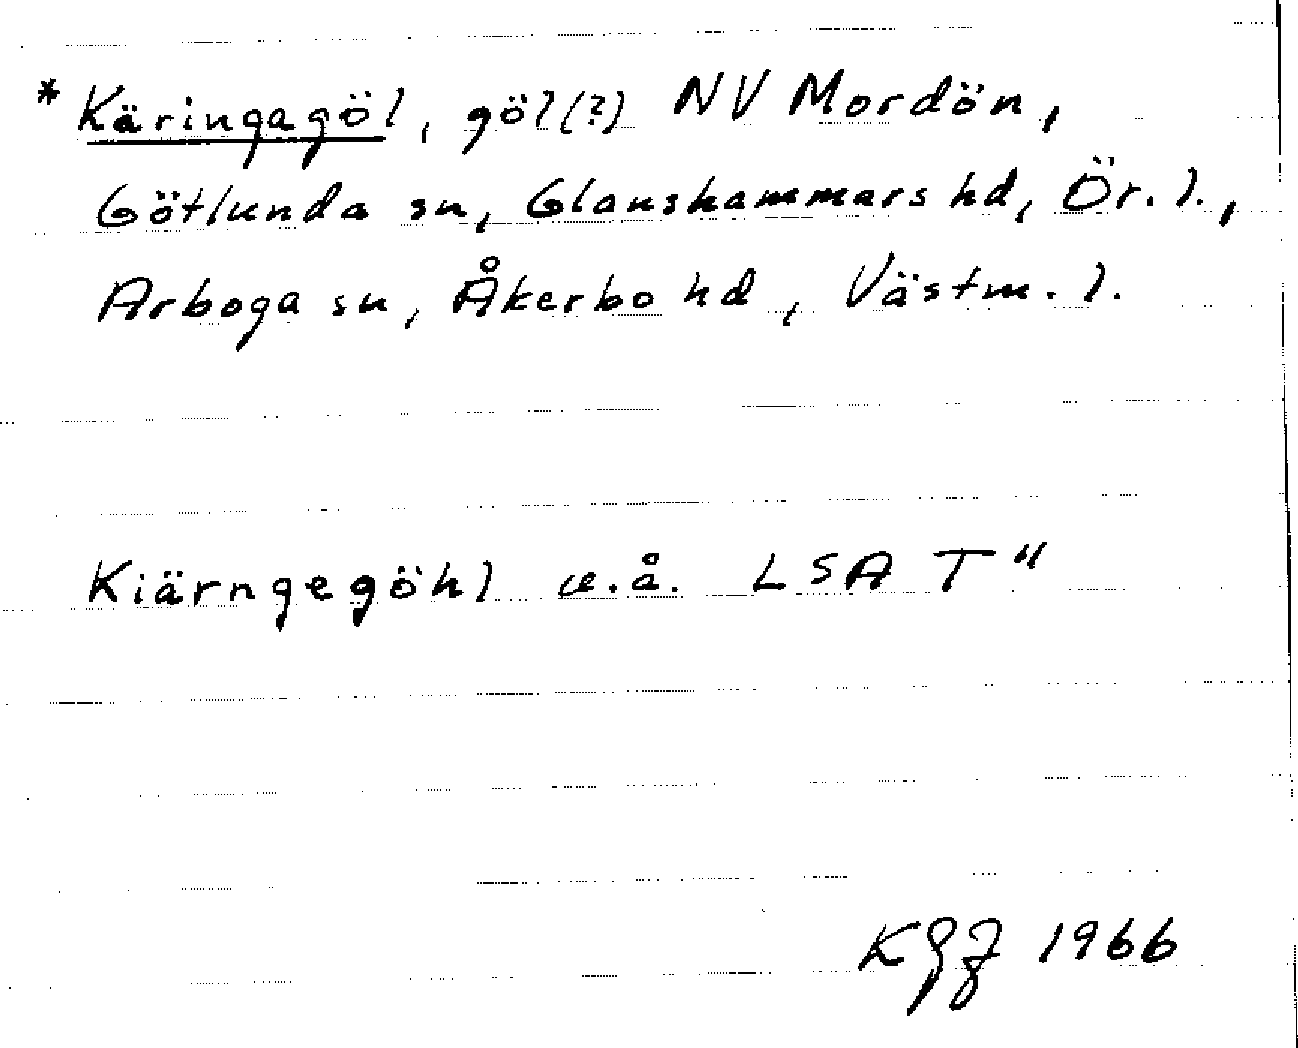 * Käringagöl, göl(?) NV Mordön,
Götlunda sn, Glanshammars hd, Ör. l.,
Arboga sn, Åkerbo hd, Västm. l.
Kiärngegöhl u.å. LSA T"
1966